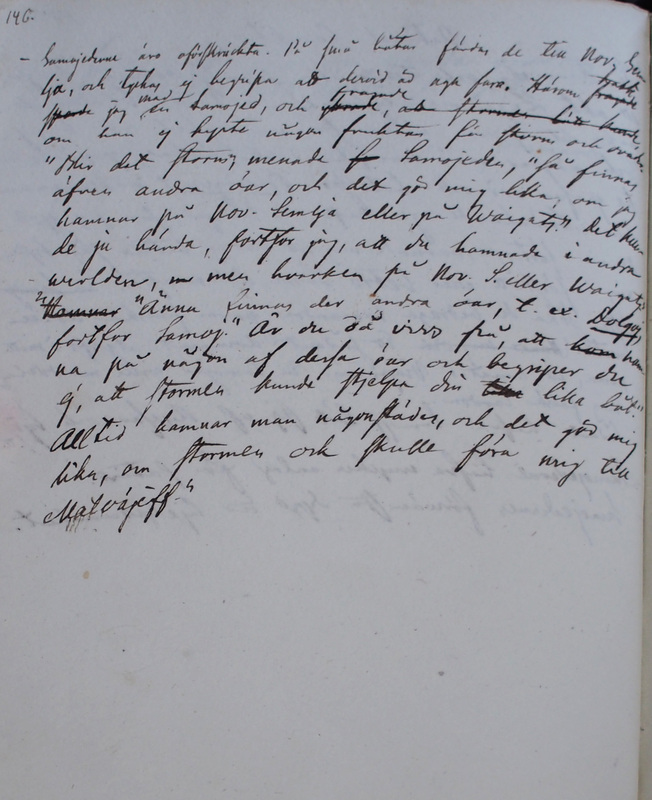 146.
– Samojederne äro oförskräckta. På små båtar färdas de till Nov. Sem
lja, och tyckas ej begripa att dervid är nga fara. Härom frågade
jag en Samojed, och
om han ej hyste någon fruktan för storm och oväder
"Blir det storm, menade Samojeden, "så finnas
äfven andra öar, och det gör mig lika, om jag
hamnar på Nov. Semlja eller på Waigatz." det kun
de ju hända, fortfor jag, att du hamnade i andra
werlden, men hvarken på Nov. S. eller Waigatz
"Hamnar "Änna finnas der andra öar, t. ex. Dolgoj,
fortfor Samoj." Är du då viss på, att ham
na på någon af dessa öar och begriper du
ej, att stormen kunde stjelpa din lilla båt."
Alltid hamnar man någonstädes, och det gör mig
lika, om stormen och skulle föra mig till
Matväjeff"